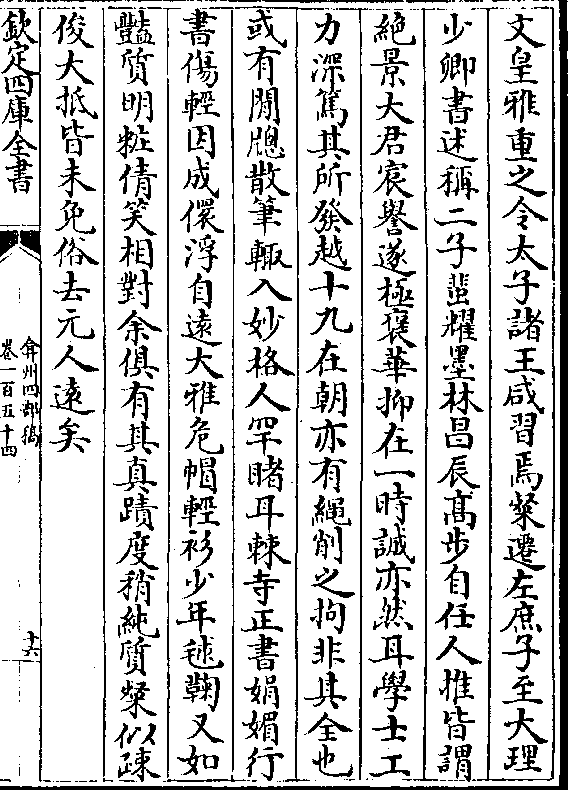 文皇雅重之令太子諸王咸習焉粲遷左庶子至大理
少卿書述稱二子蜚耀墨林昌辰髙步自任人推皆謂
絶景大君宸譽遂極褒華抑在一時誠亦然耳學士工
力深篤其所發越十九在朝亦有繩削之拘非其全也
或有閒牕散筆輙入妙格人罕睹耳棘寺正書娟媚行
書傷輕因成儇浮自遠大雅危㡌輕衫少年毬鞠又如
豔質明粧倩笑相對余俱有其真蹟度稍純質粲似疎
俊大抵皆未免俗去元人遠矣
欽定四庫全書
弇州四部稿
卷一百五十四
十六